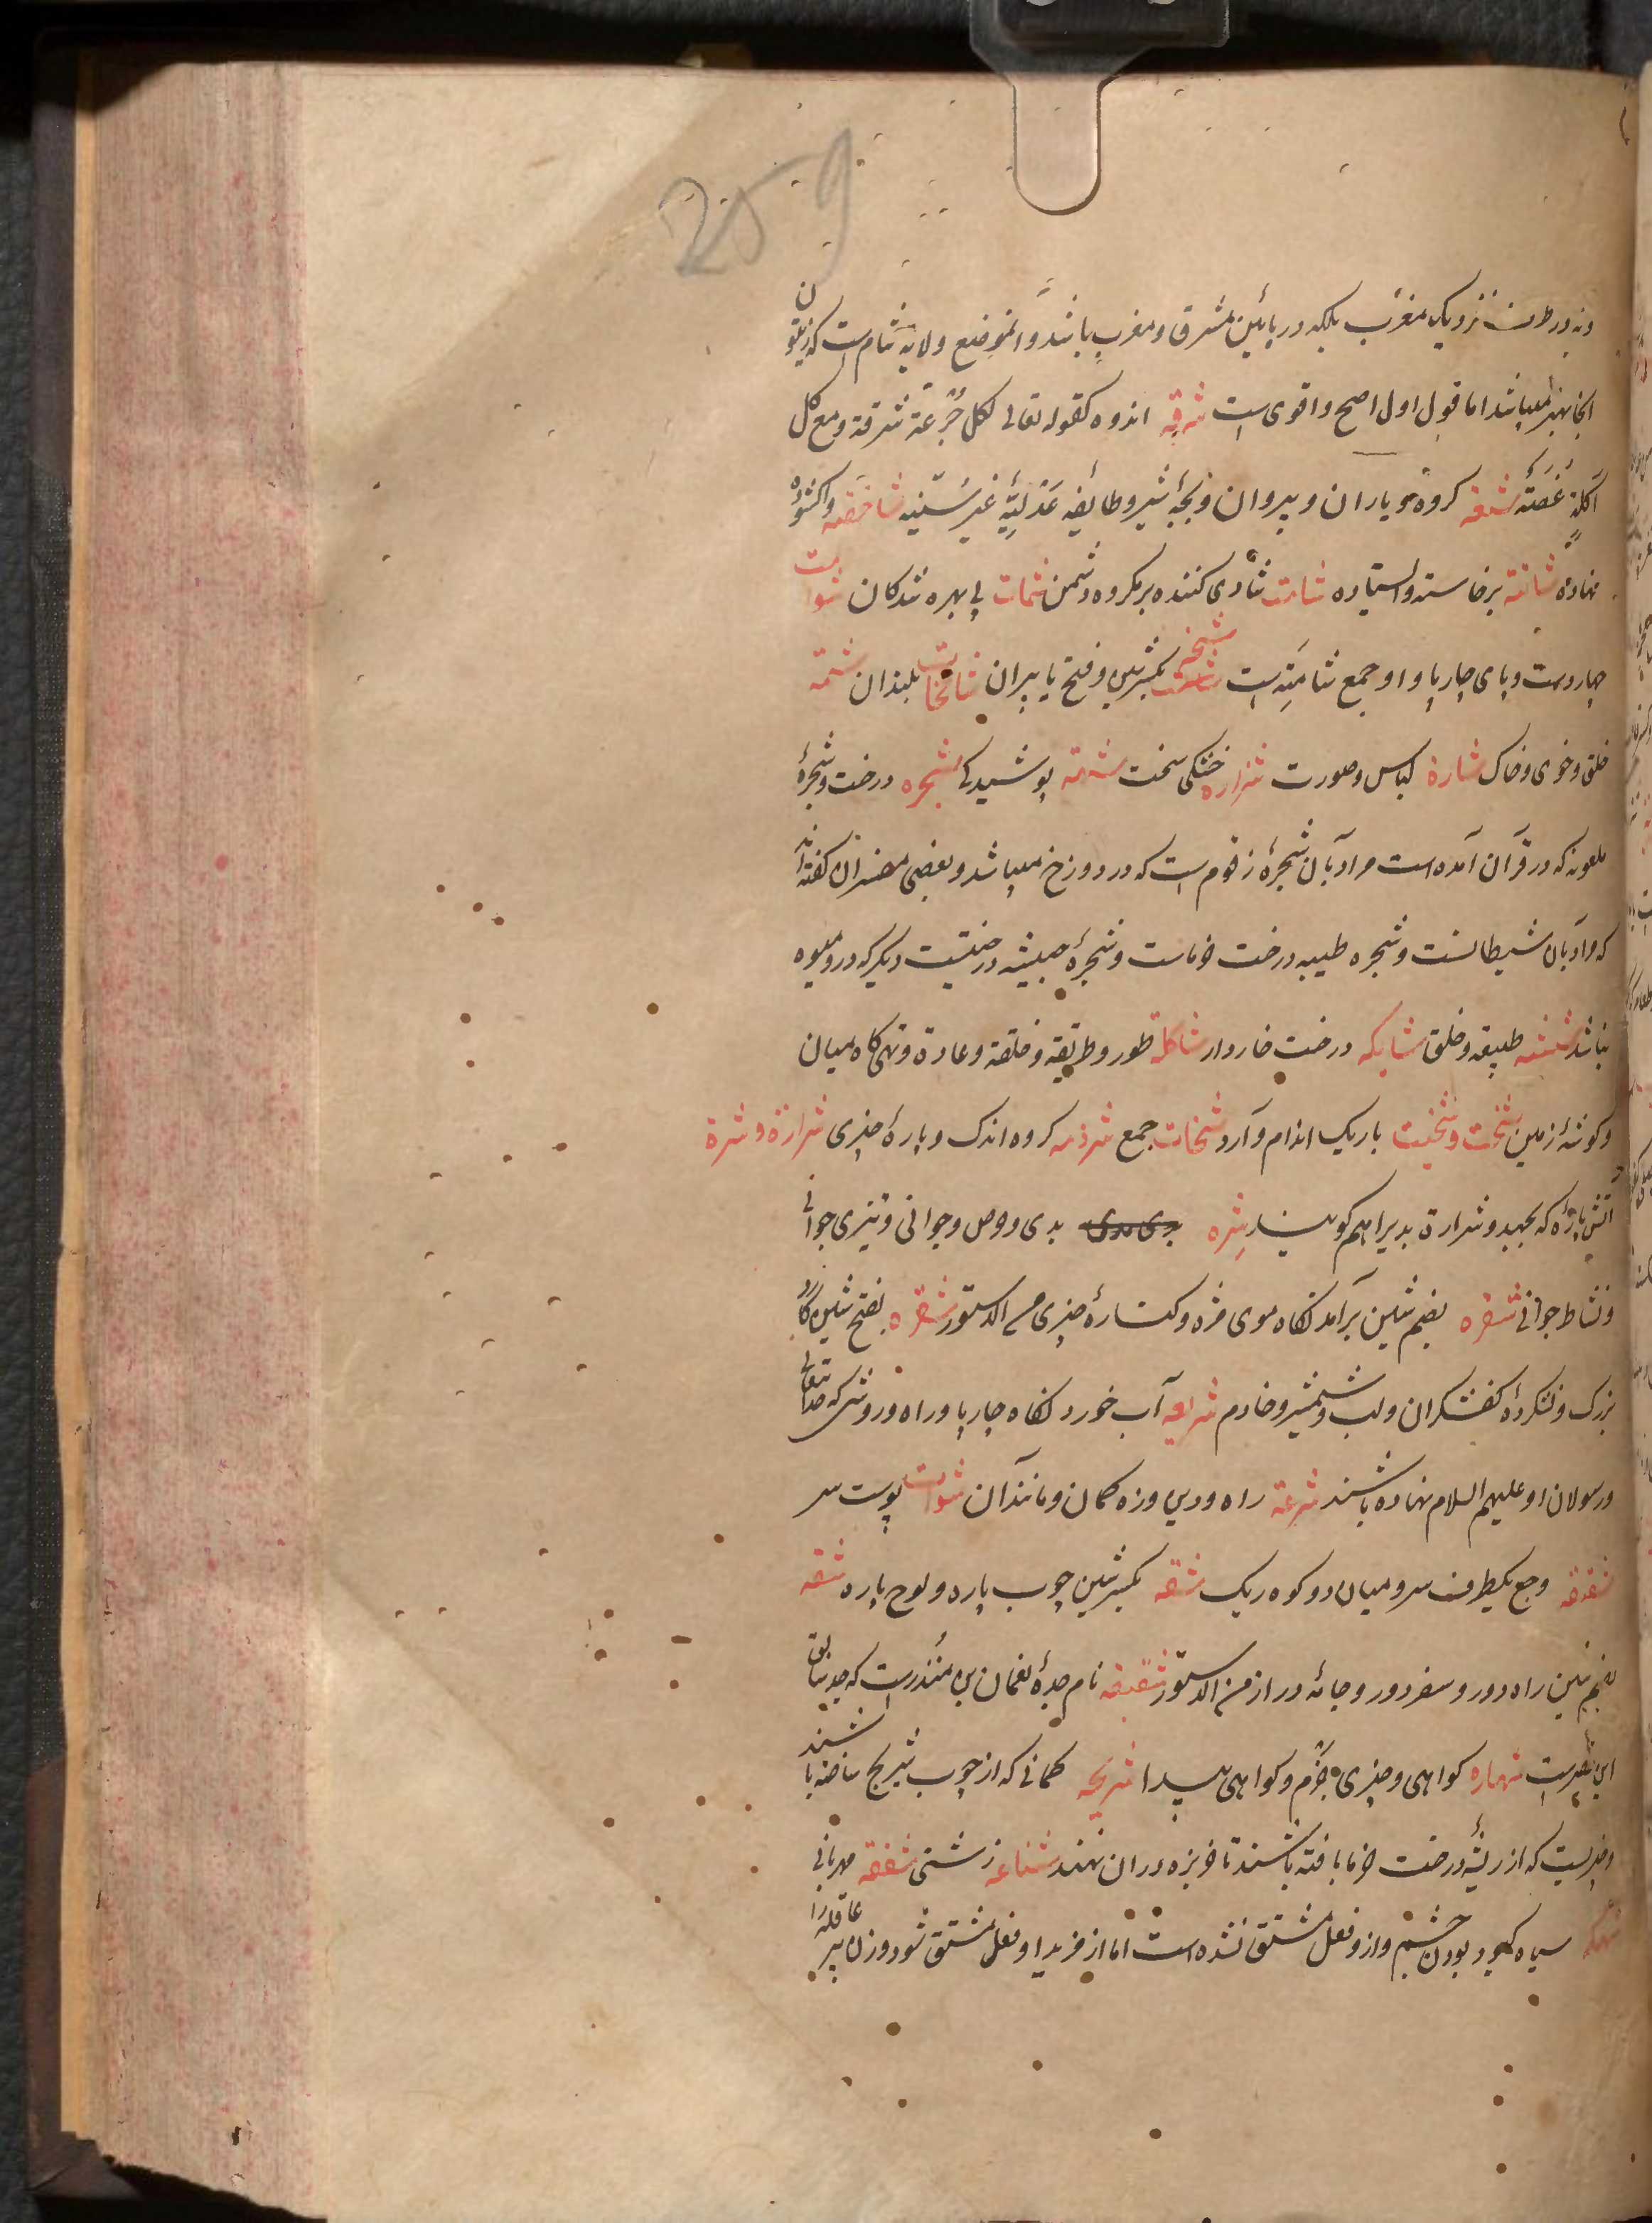 259
ونه در طرف نزدیک مغرب بلکه در مابین مشرق و مغرب باشد و انموضع ولایة شام است که زیتون
انجا بهتر میباشد اما قول اول اصح و اقوی است شرقه اندوه کقوله تعالی لکل جرعة شرقة ومع کل
آکلة غصة شیعه کروه و یاران و پیروان و بچهٔ شیر و طایفه عدلیه غیر سنیه شاخصه واکشوده
نهاده شاخصه برخاسته و ایستاده شامت شادی کننده بر مکروه دشمن شمات بی بهره شدکان شوامت
چهار دست و پای چارپا و او جمع شامته است شیخه بکسر شین و فتح یا پیران شامخات بلندان شیمه
خلق و خوی و خاک شارة لباس و صورت شزاره خشکی سخت شجره درخت و شجرهٔ
ملعونه که در قرآن آمده است مراد بآن شجرهٔ زقوم است که در دوزخ میباشد و بعضی مفسران کفته اند
که مراد بآن شیطانست و شجره طیبه درخت خرماست و شجرهٔ خبیثه درختیست دیگر که درو میوه
نباشد شنشنه طبیعه و خلق شابکه درخت خاردار شاکلة طور و طریقه و خلقة و عادة و تهی کاه میان
و کوشهٔ زمین شخت و شخیت باریک اندام و آرد شخات جمع شرذمه کروه اندک و پارهٔ چیزی شرارة و شررة
آتش پارهٔ که بجهد و شرارة بدیرا هم کویند شره بدی و حرص و جوانی و تیزی جوانی
و نشاط جوانی شفره بضم شین برآمدنکاه موی مژه و کنارهٔ چیزی من الدستور شفره بفتح شین کارد
بزرک و نشکردهٔ کفشکران ولب شمشیر و خادم شریعه آب خوردنکاه چارپا و راه و روشی که خدا تعالی
و رسولان او علیهم السلام نهاده باشند شرعة راه و دین وزه کمان و مانند آن شوات پوست سر
شقیقه وجع یکطرف سر و میان دو کوه ریک شقه بکسر شین چوب پاره و لوح پاره شقه
بضم شین راه دور و سفر دور و جامهٔ دراز من الدستور شقیقه نام جدهٔ نعمان بن منذرست که جد
شهاده کواهی و چیزی بجزم و کواهی شریجه کمانی که از چوب شریج ساخته باشند
و چیزیست که از ریشهٔ درخت خرما بافته باشند تا خربزه در آن نهند شناعه زشتی شفقه مهربانی
شهله سیاه کبود بودن چشم و ازو فعل مشتق نشده است اما از مزید او فعل مشتق شود و زن پیر عاقله را